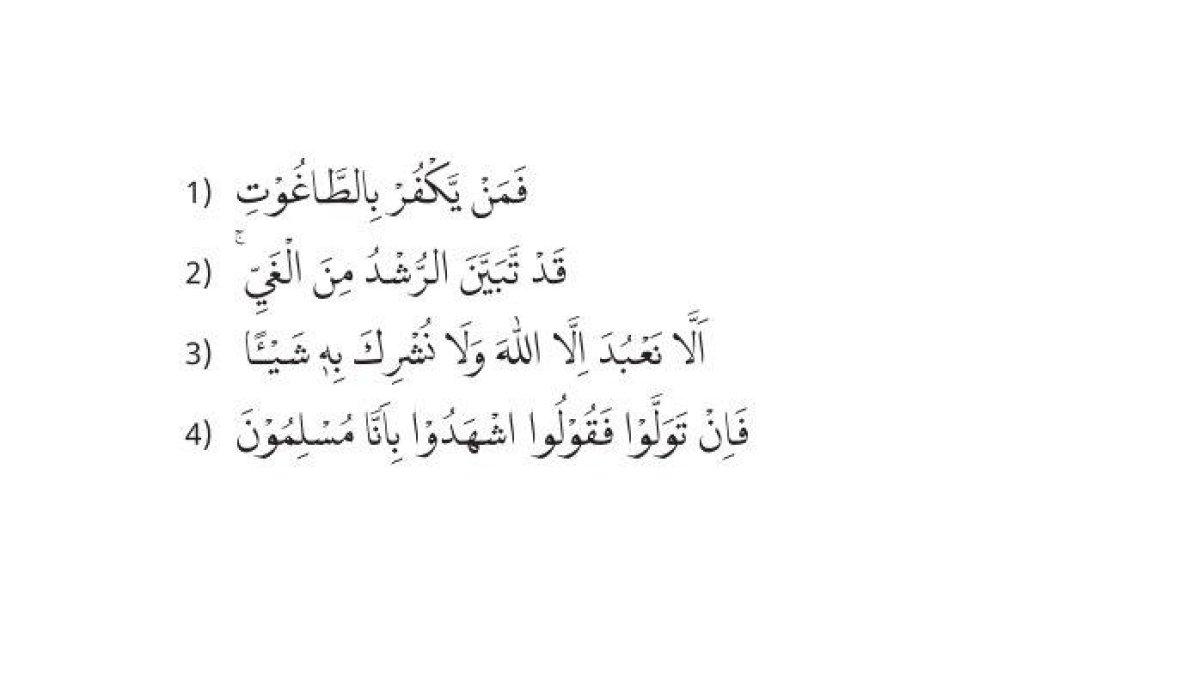 1) فَمَنْ يَّكْفُرْ بِالطَّاغُوْتِ
2) قَدْ تَّبَيَّنَ الرُّشْدُ مِنَ الْغَيِّ ۚ
3) اَلَّا نَعْبُدَ اِلَّا اللّٰهَ وَلَا نُشْرِكَ بِهٖ شَيْـًٔا
4) فَاِنْ تَوَلَّوْا فَقُوْلُوا اشْهَدُوْا بِاَنَّا مُسْلِمُوْنَ